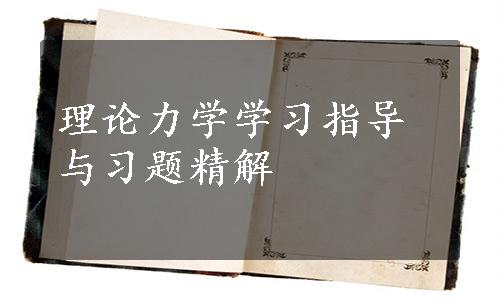 理论力学学习指导
与习题精解